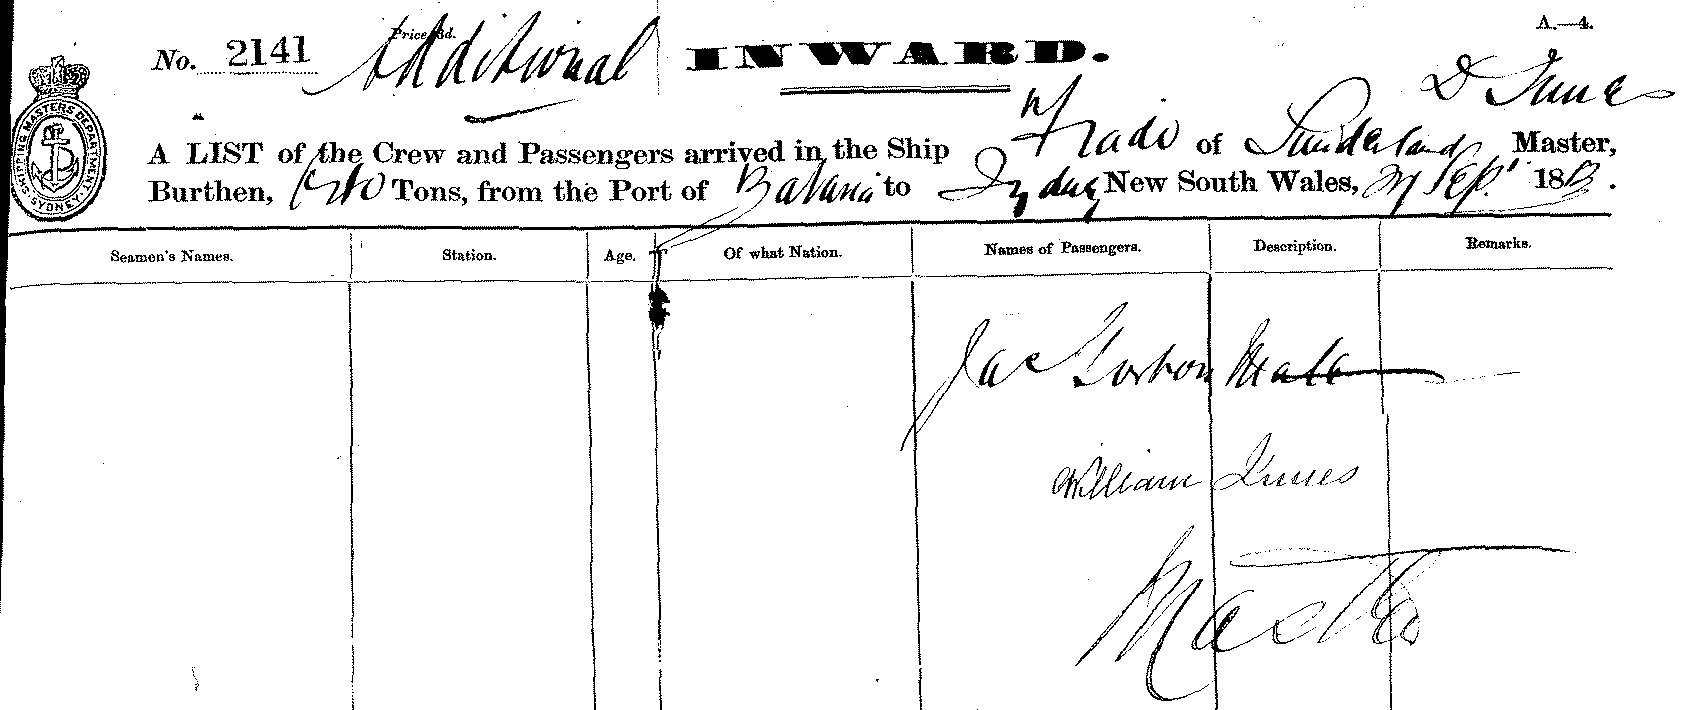 A.—4.
No. 2141 Price 3d. Additional INWARD.
SHIPPING MASTERS DEPARTMENT SYDNEY
A LIST of the Crew and Passengers arrived in the Ship Trade of Sunderland Master,
Burthen, Tons, from the Port of Batavia to Sydney New South Wales, Sep. 18 .
Seamen's Names. Station. Age. Of what Nation. Names of Passengers. Description. Remarks.
Jas
William Innes
Master